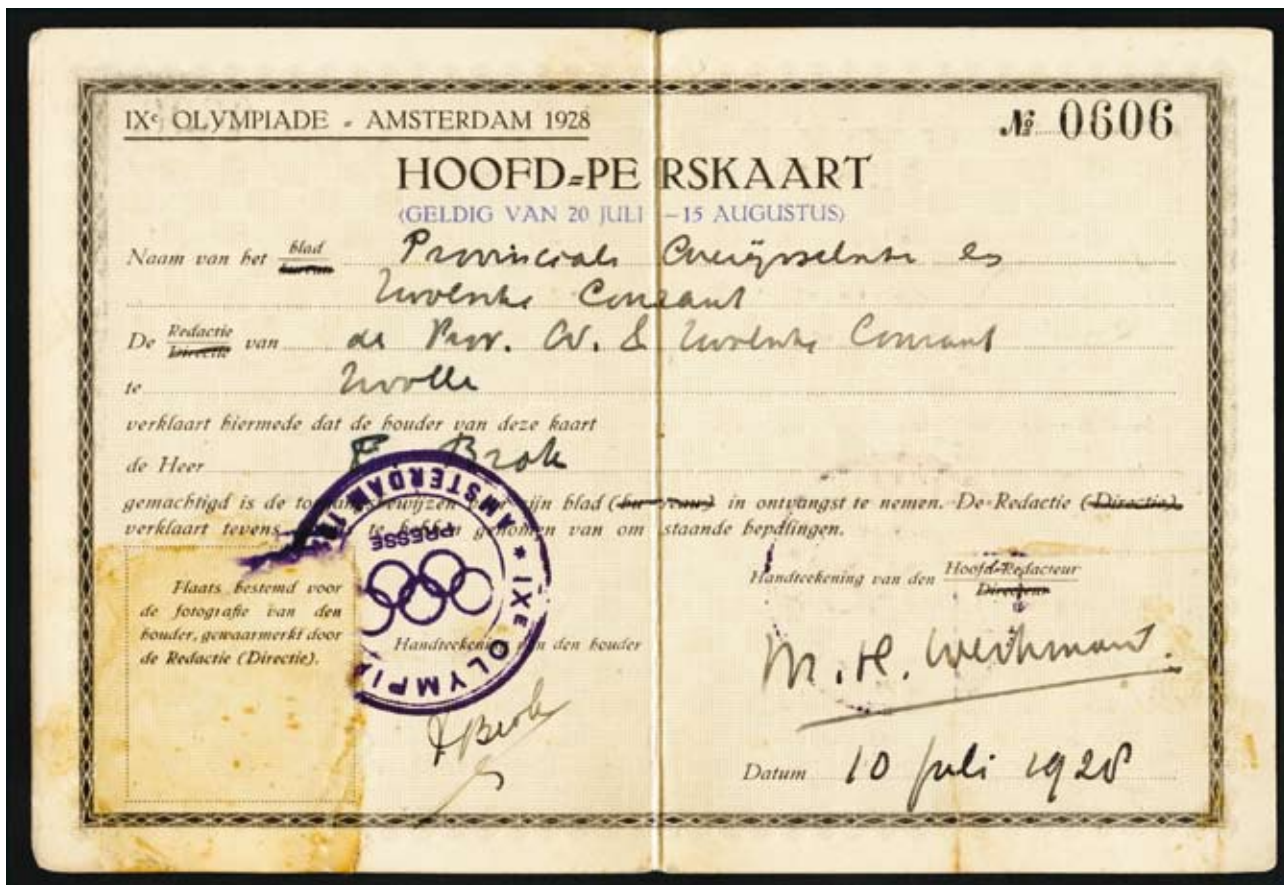 IXe OLYMPIADE - AMSTERDAM 1928
№ 0606
HOOFD=PERSKAART
(GELDIG VAN 20 JULI - 15 AUGUSTUS)
Naam van het blad Provinciale Overijsselsche en
bureau
Zwolsche Courant
De Redactie van de Prov. Ov. & Zwolsche Courant
Directie
te Zwolle
verklaart hiermede dat de houder van deze kaart
de Heer F. Brok
gemachtigd is de toegangsbewijzen voor zijn blad (bureau) in ontvangst te nemen. De Redactie (Directie),
verklaart tevens te hebben genomen van omstaande bepalingen.
Plaats bestemd voor
de fotografie van den
houder, gewaarmerkt door
de Redactie (Directie).
IXE OLYMPIADE * AMSTERDAM
PRESSE
Handteekening van den houder
F Brok
Handteekening van den Hoofd-Redacteur
Directeur
M. H. Werkman
Datum 10 Juli 1928